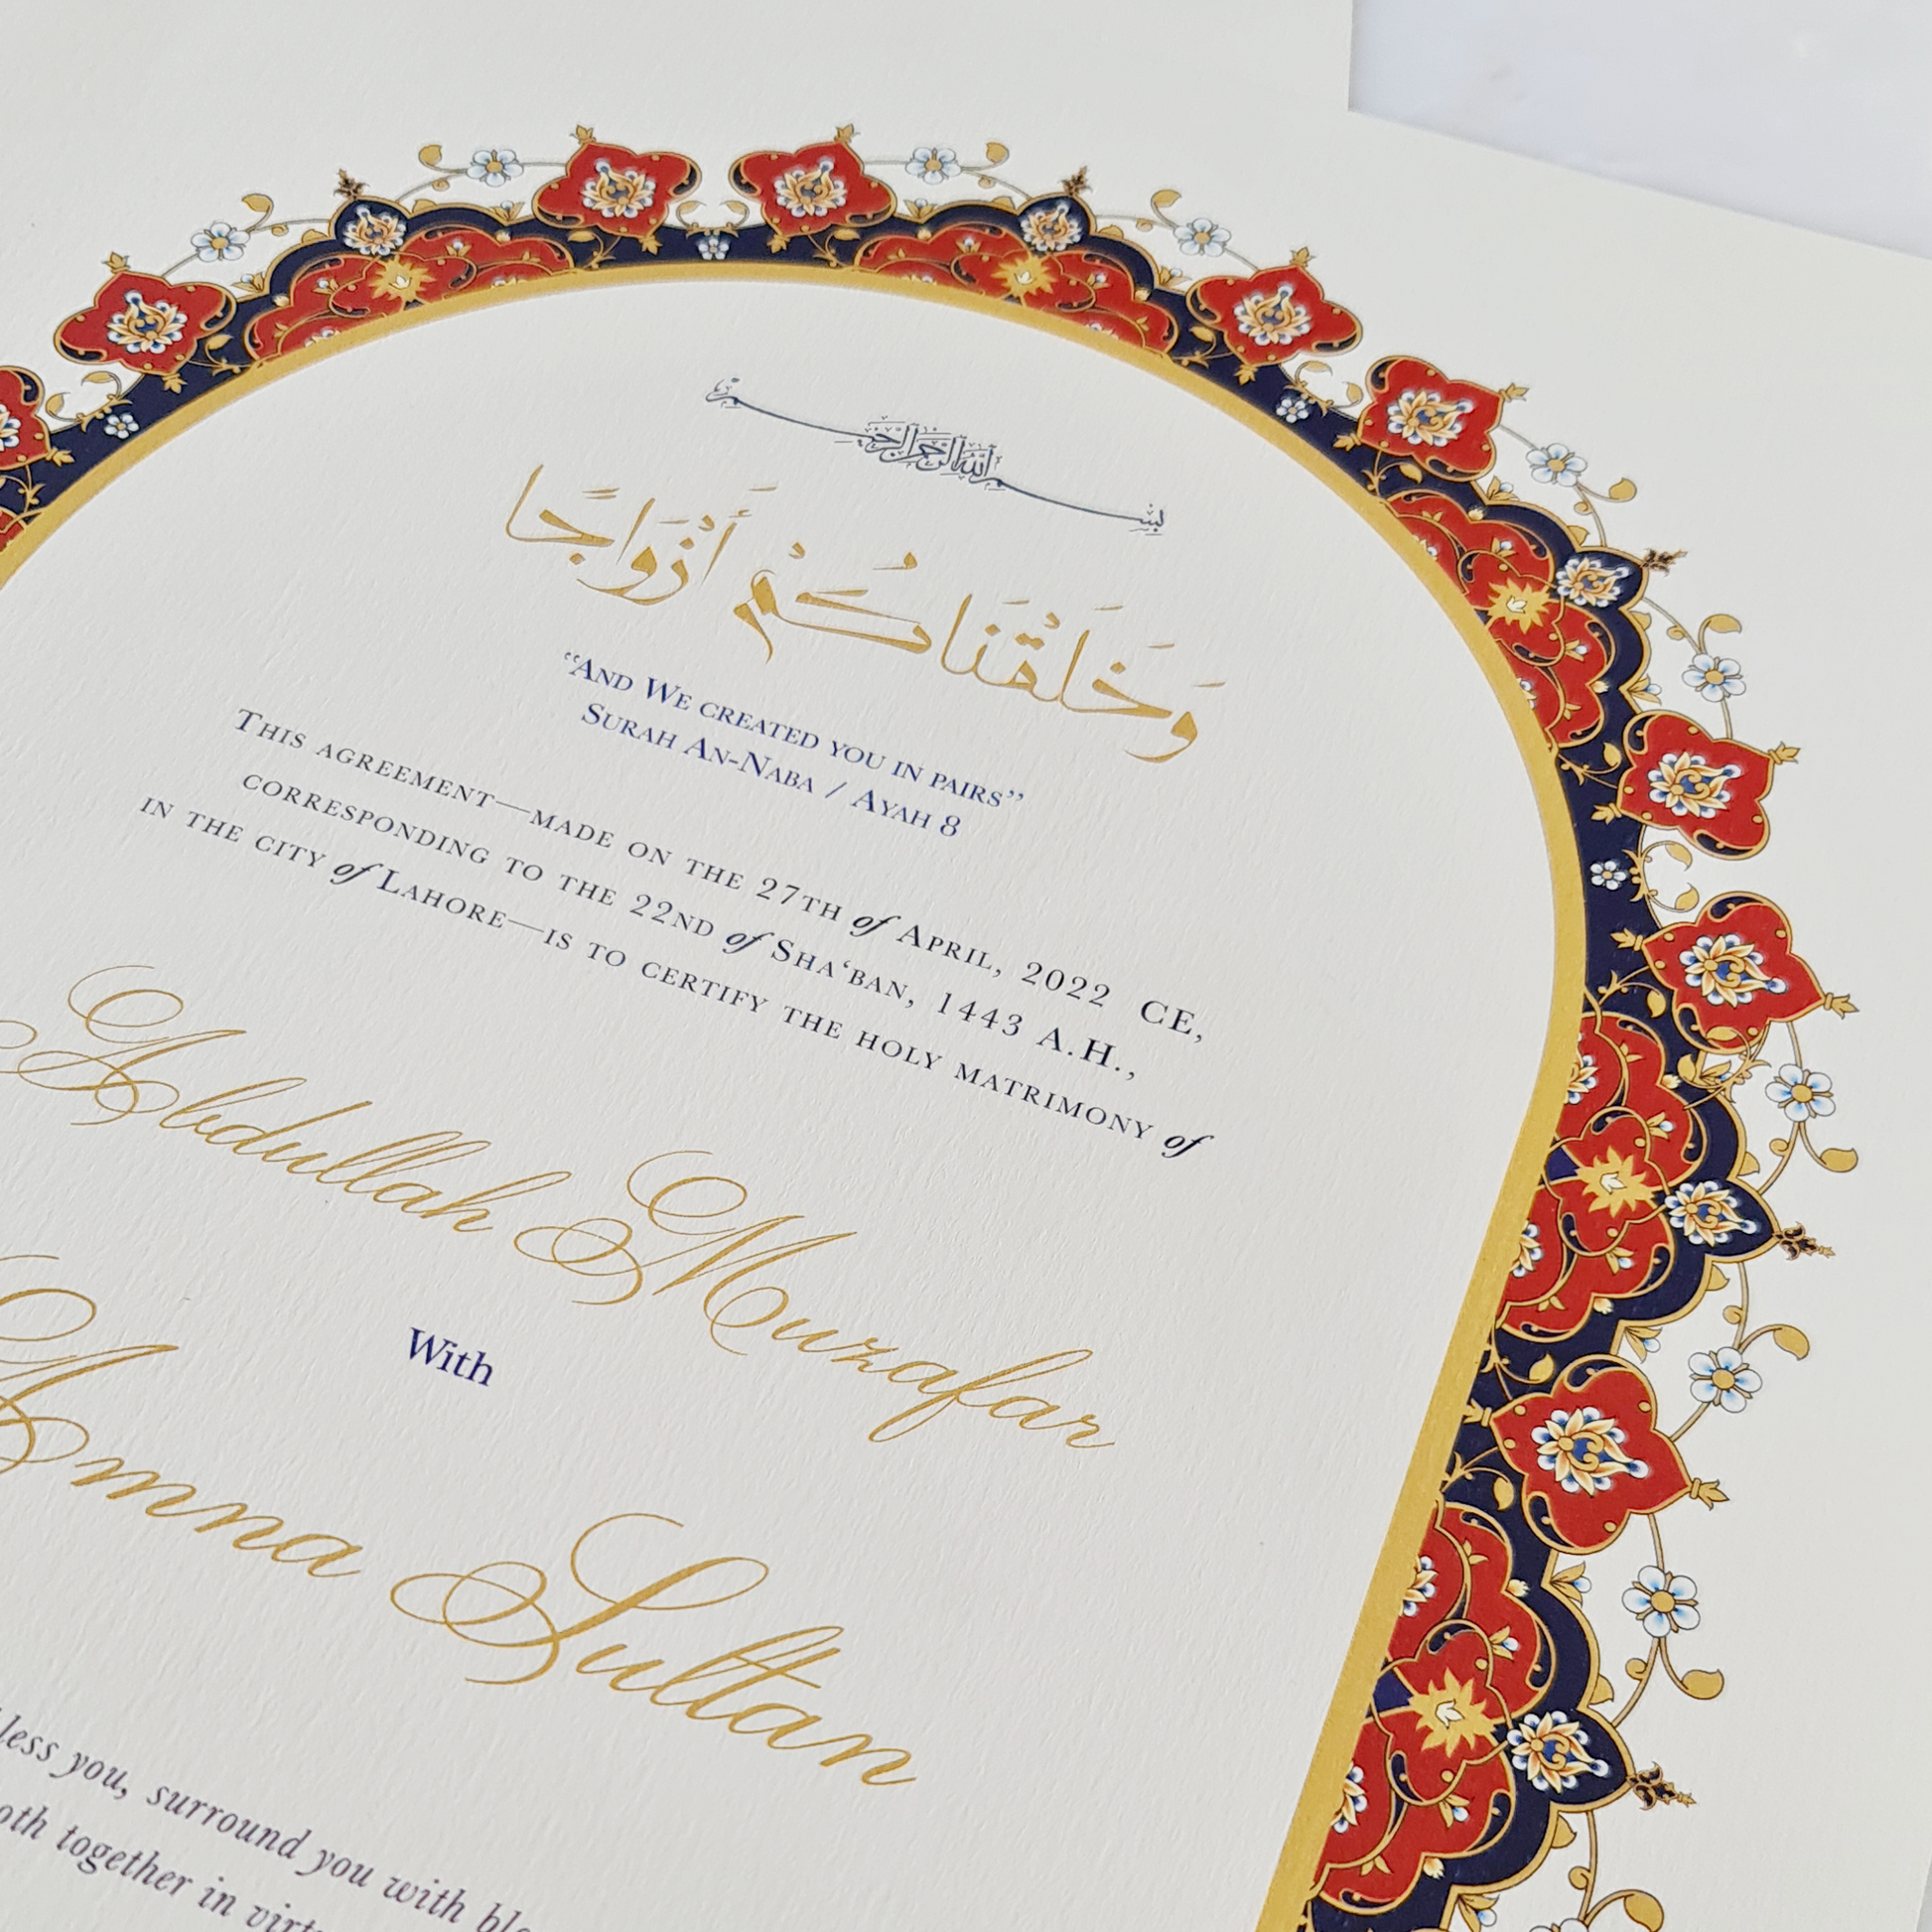 بِسْمِ اللهِ الرَّحْمٰنِ الرَّحِيْمِ
وَخَلَقْنَاكُمْ أَزْوَاجًا
“And We created you in pairs”
Surah An-Naba / Ayah 8
This agreement—made on the 27th of April, 2022 CE,
corresponding to the 22nd of Sha‘ban, 1443 A.H.,
in the city of Lahore—is to certify the holy matrimony of
Abdullah Muzafar
With
Amna Sultan
less you, surround you with ble
oth together in virtu